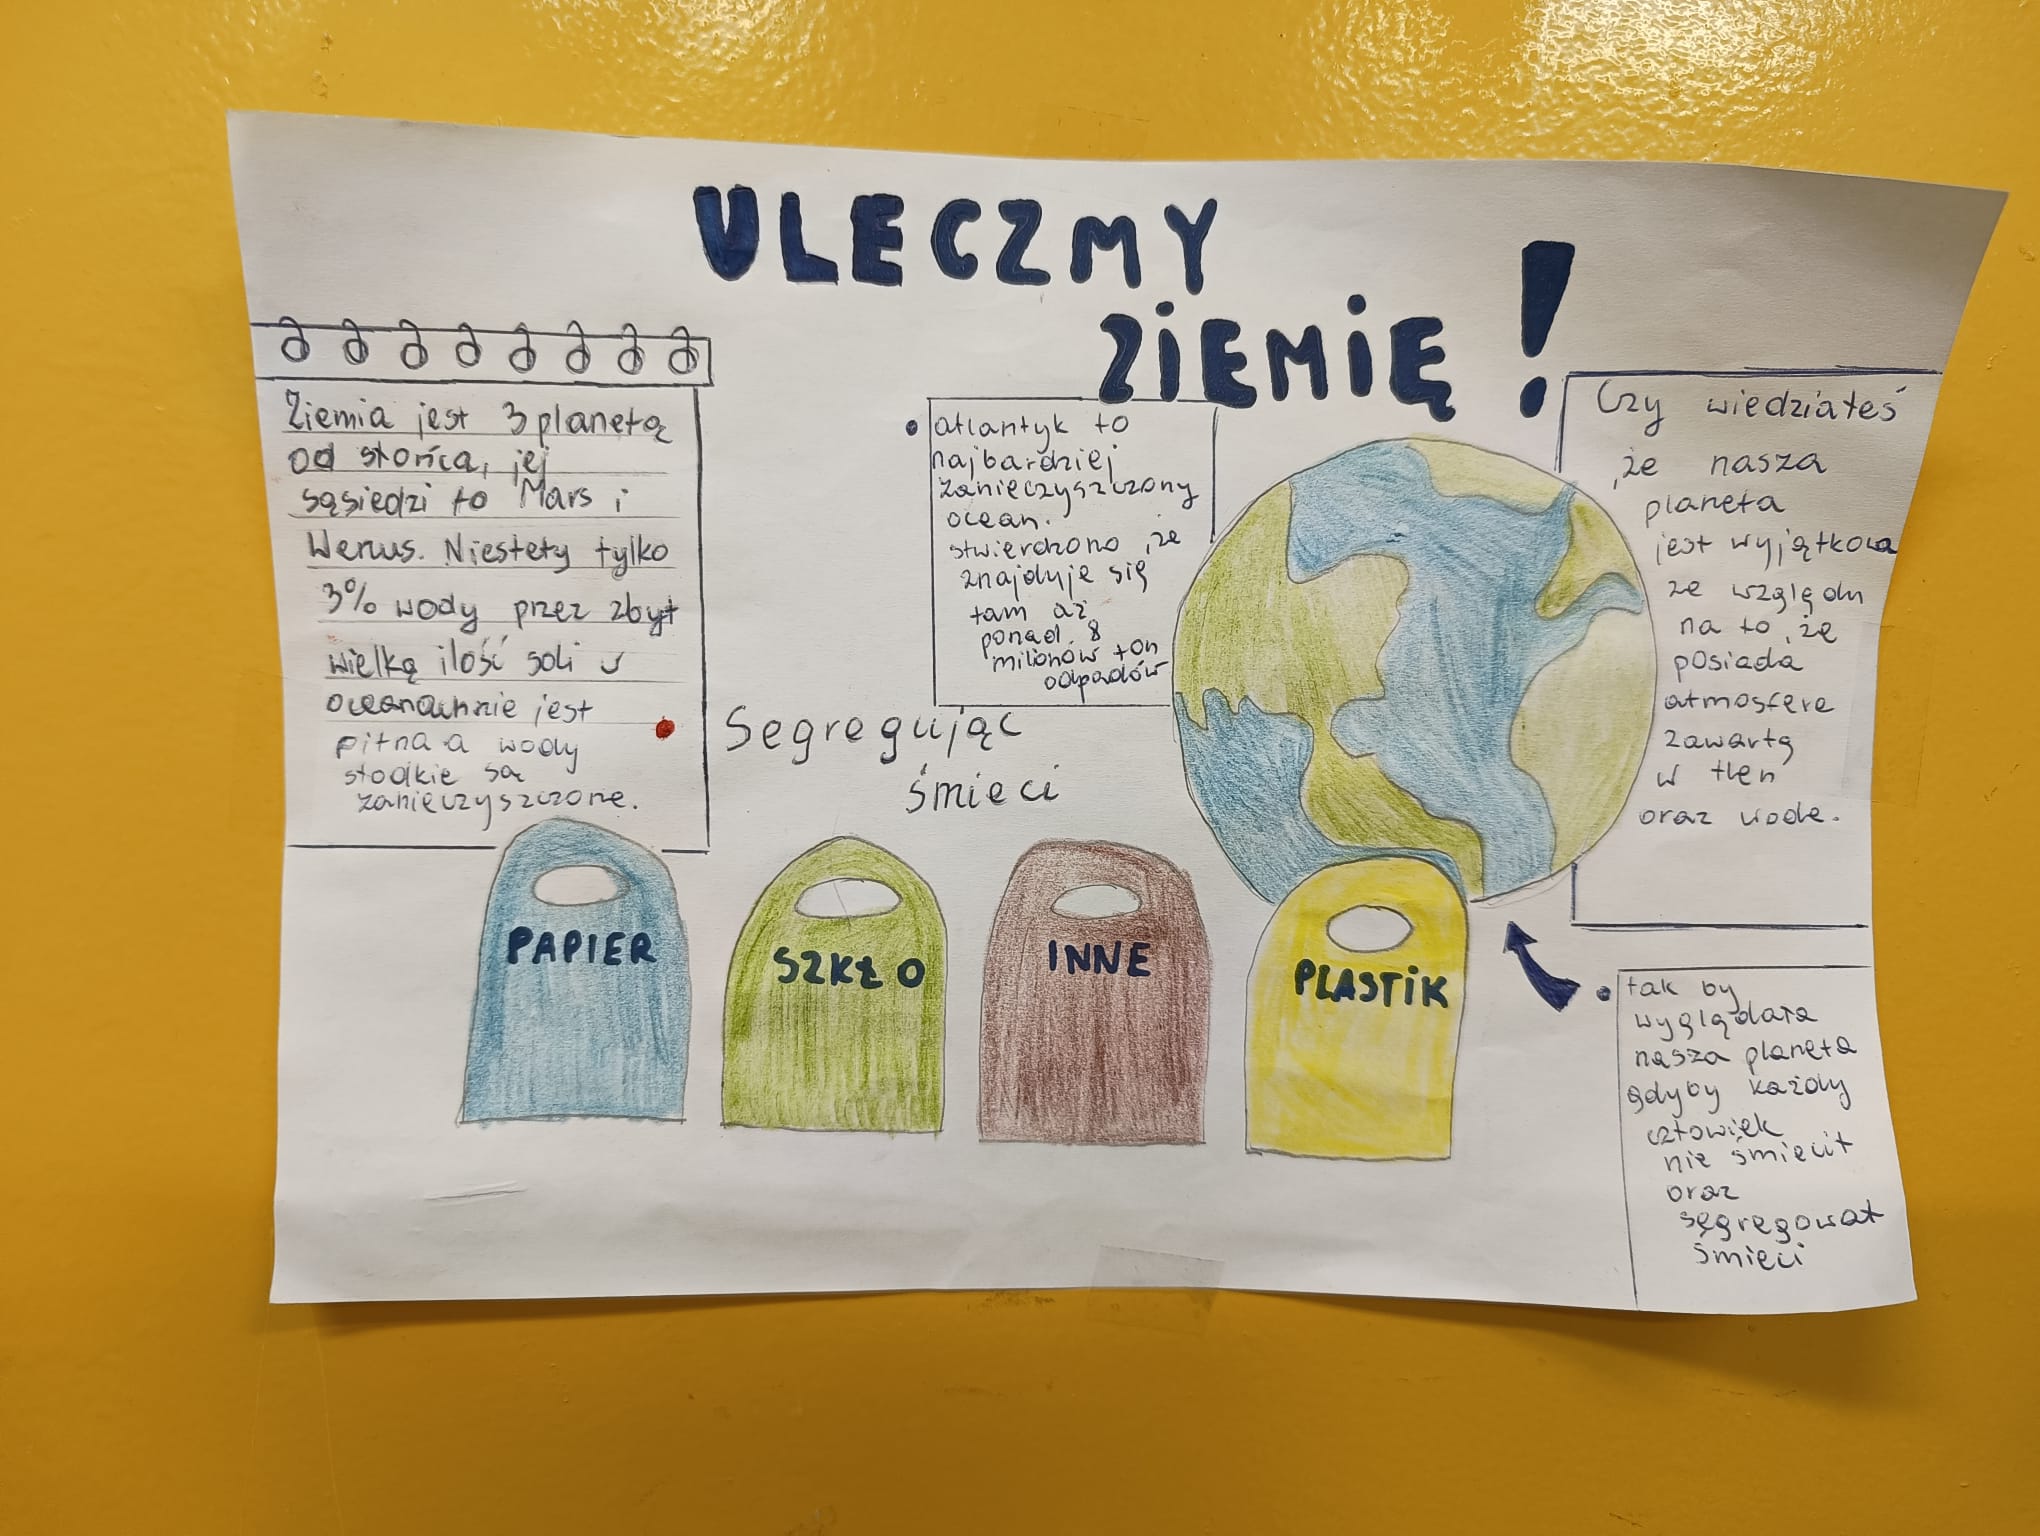 ULECZMY
ZIEMIĘ!
Ziemia jest 3 planetą
od słońca, jej
sąsiedzi to Mars i
Wenus. Niestety tylko
3% wody przez zbyt
wielką ilość soli w
oceanach nie jest
pitna a wody
słodkie są
zanieczyszczone.
atlantyk to
najbardziej
zanieczyszczony
ocean.
stwierdzono, że
znajduje się
tam aż
ponad 8
milionów ton
odpadów
Czy wiedziałeś
,że nasza
planeta
jest wyjątkowa
ze względu
na to, że
posiada
atmosferę
zawartą
w tlen
oraz wodę.
Segregując
śmieci
PAPIER
SZKŁO
INNE
PLASTIK
tak by
wyglądała
nasza planeta
gdyby każdy
człowiek
nie śmiecił
oraz
segregował
śmieci